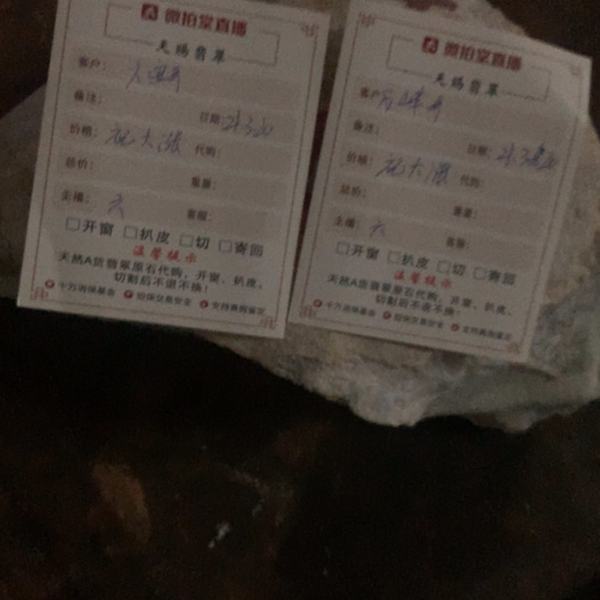 微拍堂直播
天赐翡翠
客户：
备注：
日期：21.3.20
价格：祝大涨 代购：
总价：
重量：
主播：六
客服：
□开窗 □扒皮 □切 □寄回
温馨提示
天然A货翡翠原石代购，开窗、扒皮、
切割后不退不换！
十万消保基金 担保交易安全 支持真假鉴定
微拍堂直播
天赐翡翠
客户：
备注：
日期：
价格：祝大涨 代购：
总价：
重量：
主播：六
客服：
□开窗 □扒皮 □切 □寄回
温馨提示
天然A货翡翠原石代购，开窗、扒皮、
切割后不退不换！
十万消保基金 担保交易安全 支持真假鉴定